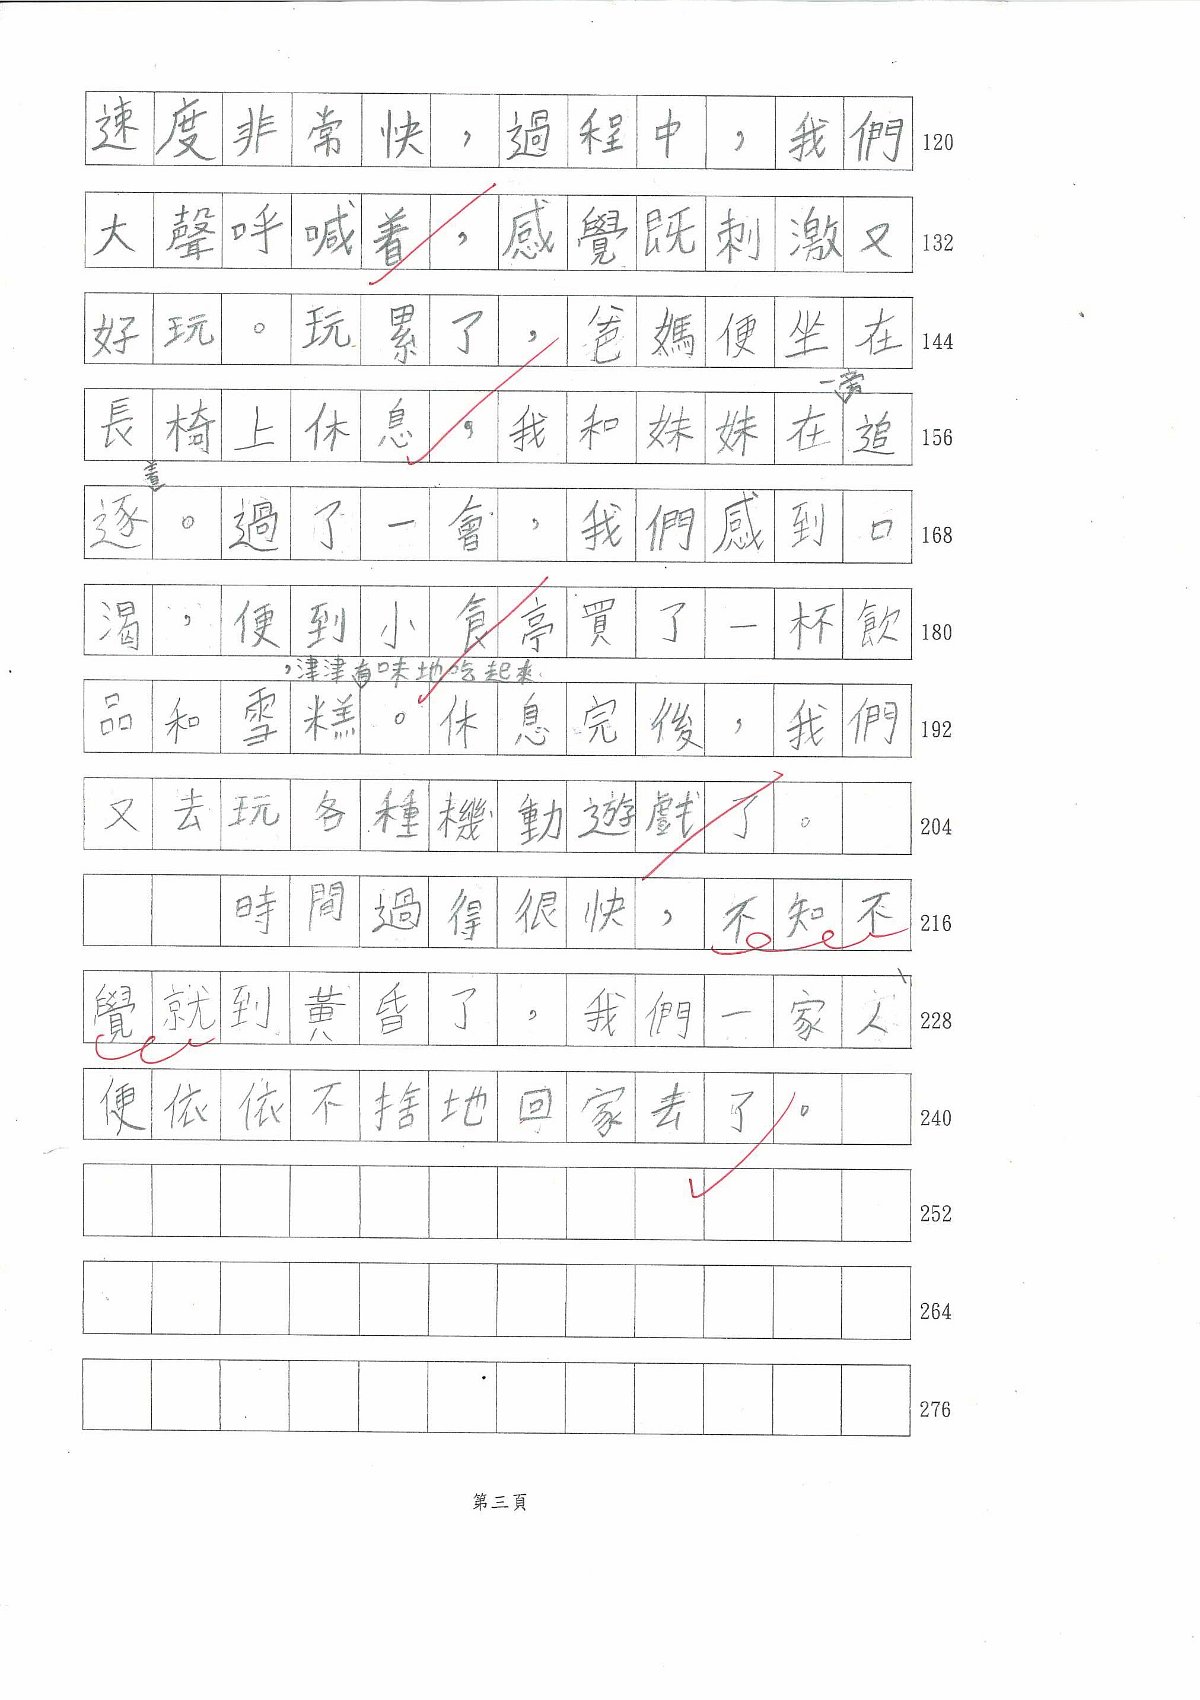 速度非常快，過程中，我們 120
大聲呼喊着，感覺既刺激又 132
好玩。玩累了，爸媽便坐在 144
一旁
長椅上休息，我和妹妹在追 156
着
逐。過了一會，我們感到口 168
渴，便到小食亭買了一杯飲 180
，津津有味地吃起來
品和雪糕。休息完後，我們 192
又去玩各種機動遊戲了。 204
時間過得很快，不知不 216
覺就到黃昏了，我們一家人 228
便依依不捨地回家去了。 240
252
264
276
第三頁